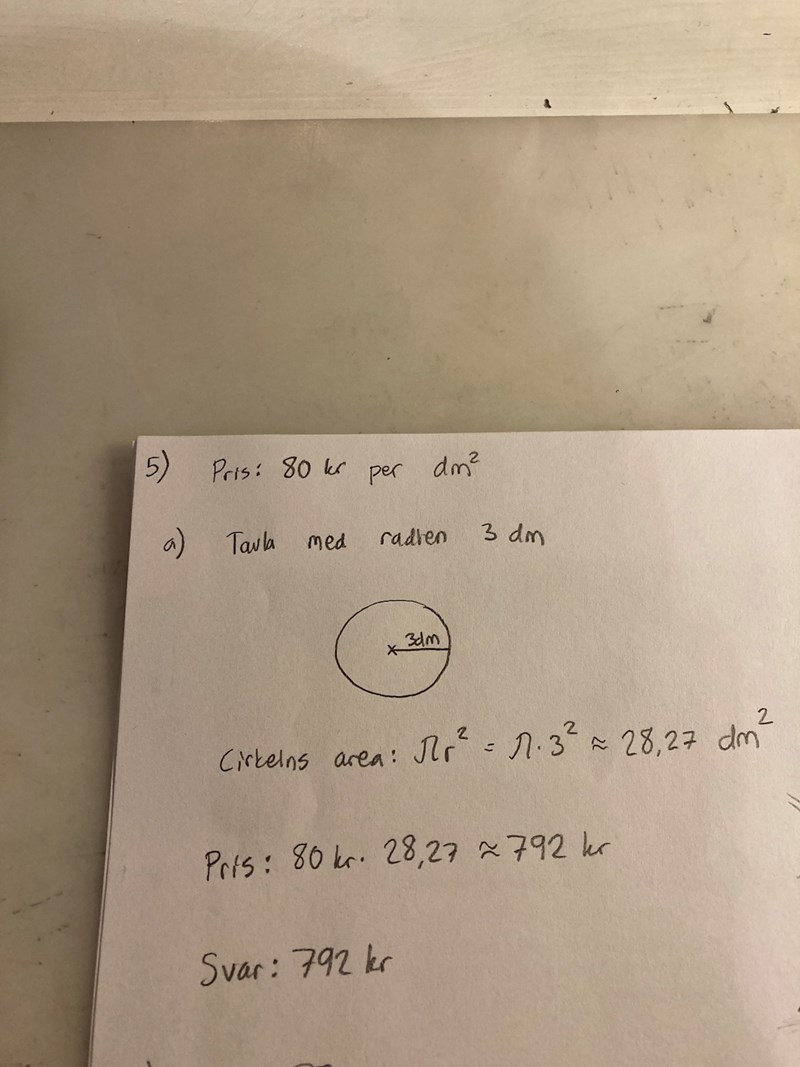 5) Pris: 80 kr per dm²
a) Tavla med radien 3 dm
3dm
Cirkelns area: πr² = π·3² ≈ 28,27 dm²
Pris: 80 kr · 28,27 ≈ 792 kr
Svar: 792 kr